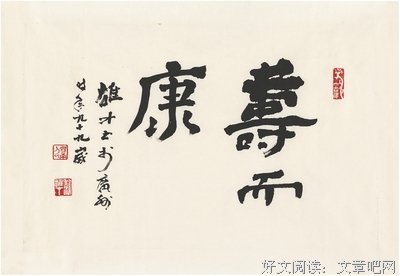 壽而
康
雄才书於廣州
时年九十九歲
好文阅读：文章吧网